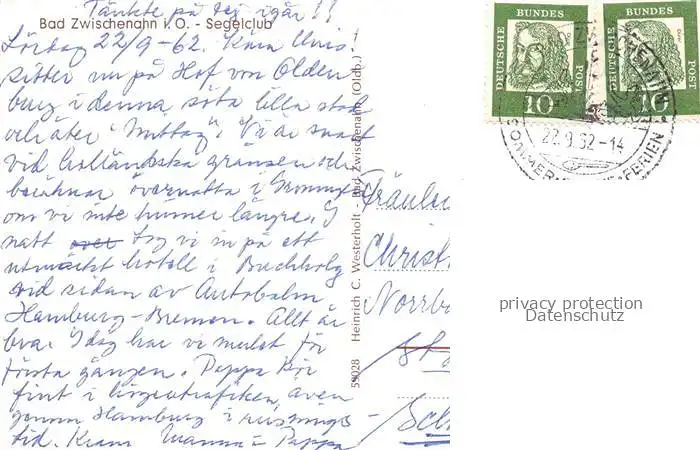 Tänkte på Dej igår!!
Bad Zwischenahn i. O. - Segelclub
Lördag 22/9-62. Kära Chris!
sitter nu på Hof von Olden
burg i denna söta lilla stad
och äter "Mittag". Vi är snart
vid holländska gränsen och
beräknar övernatta i
om vi inte hinner längre. I
natt låg vi in på ett
utmärkt hotell i Buchholz
vid sidan av Autobahn
Hamburg-Bremen. Allt är
bra. I dag har vi mulet för
första gången. Pappa kör
fint i långtrafiken, även
genom Hamburg i rusnings-
tid. Kram Mamma - Pappa
59028 Heinrich C. Westerholt - Bad Zwischenahn (Oldb.)
Fräulein
Christ
Norrb
DEUTSCHE BUNDES POST 10
DEUTSCHE BUNDES POST 10 Dürer
22.9.62-14
privacy protection
Datenschutz